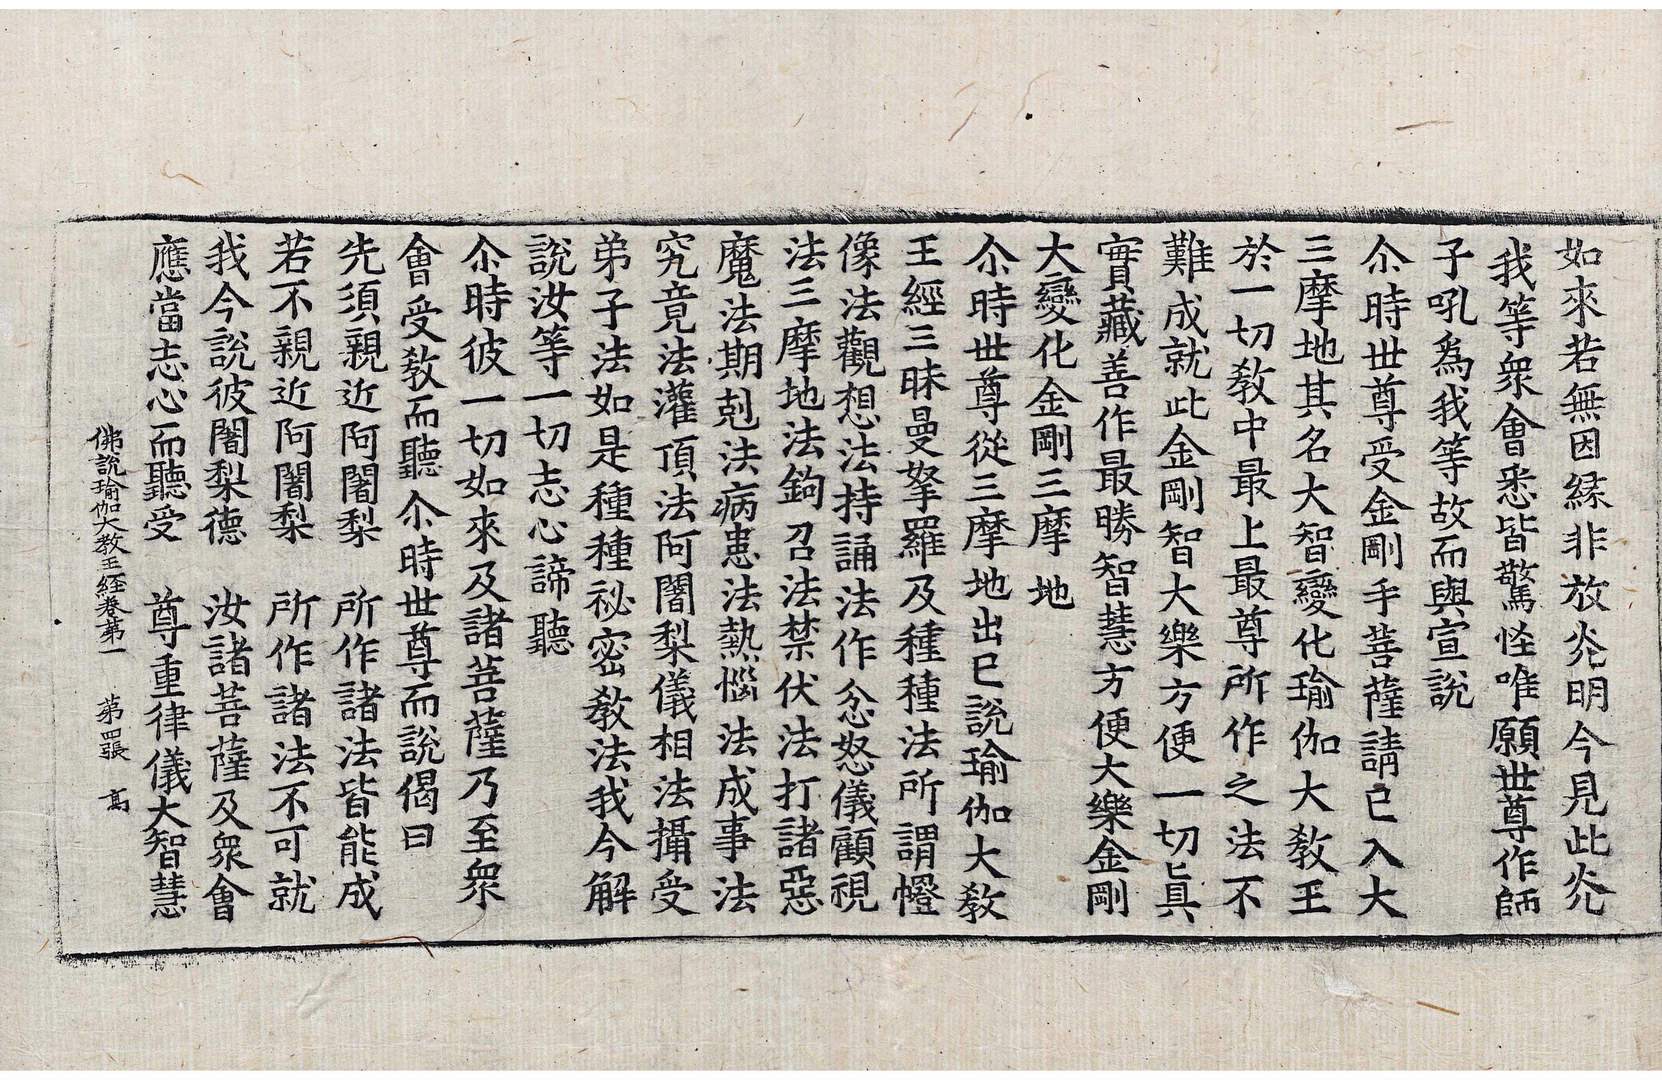 如來若無因緣非放光明今見此光
我等衆會悉皆驚怪唯願世尊作師
子吼為我等故而與宣說
尒時世尊受金剛手菩薩請已入大
三摩地其名大智變化瑜伽大教王
於一切教中最上最尊所作之法不
難成就此金剛智大樂方便一切眞
實藏善作最勝智慧方便大樂金剛
大變化金剛三摩地
尒時世尊從三摩地出已說瑜伽大教
王經三昧曼拏羅及種種法所謂㡧
像法觀想法持誦法作忿怒儀顧視
法三摩地法鉤召法禁伏法打諸惡
魔法期剋法病患法熱惱法成事法
究竟法灌頂法阿闍梨儀相法攝受
弟子法如是種種祕密教法我今解
說汝等一切志心諦聽
尒時彼一切如來及諸菩薩乃至衆
會受教而聽尒時世尊而說偈曰
先須親近阿闍梨　所作諸法皆能成
若不親近阿闍梨　所作諸法不可就
我今說彼闍梨德　汝諸菩薩及衆會
應當志心而聽受　尊重律儀大智慧
佛說瑜伽大教王經卷第一　第四張　髙